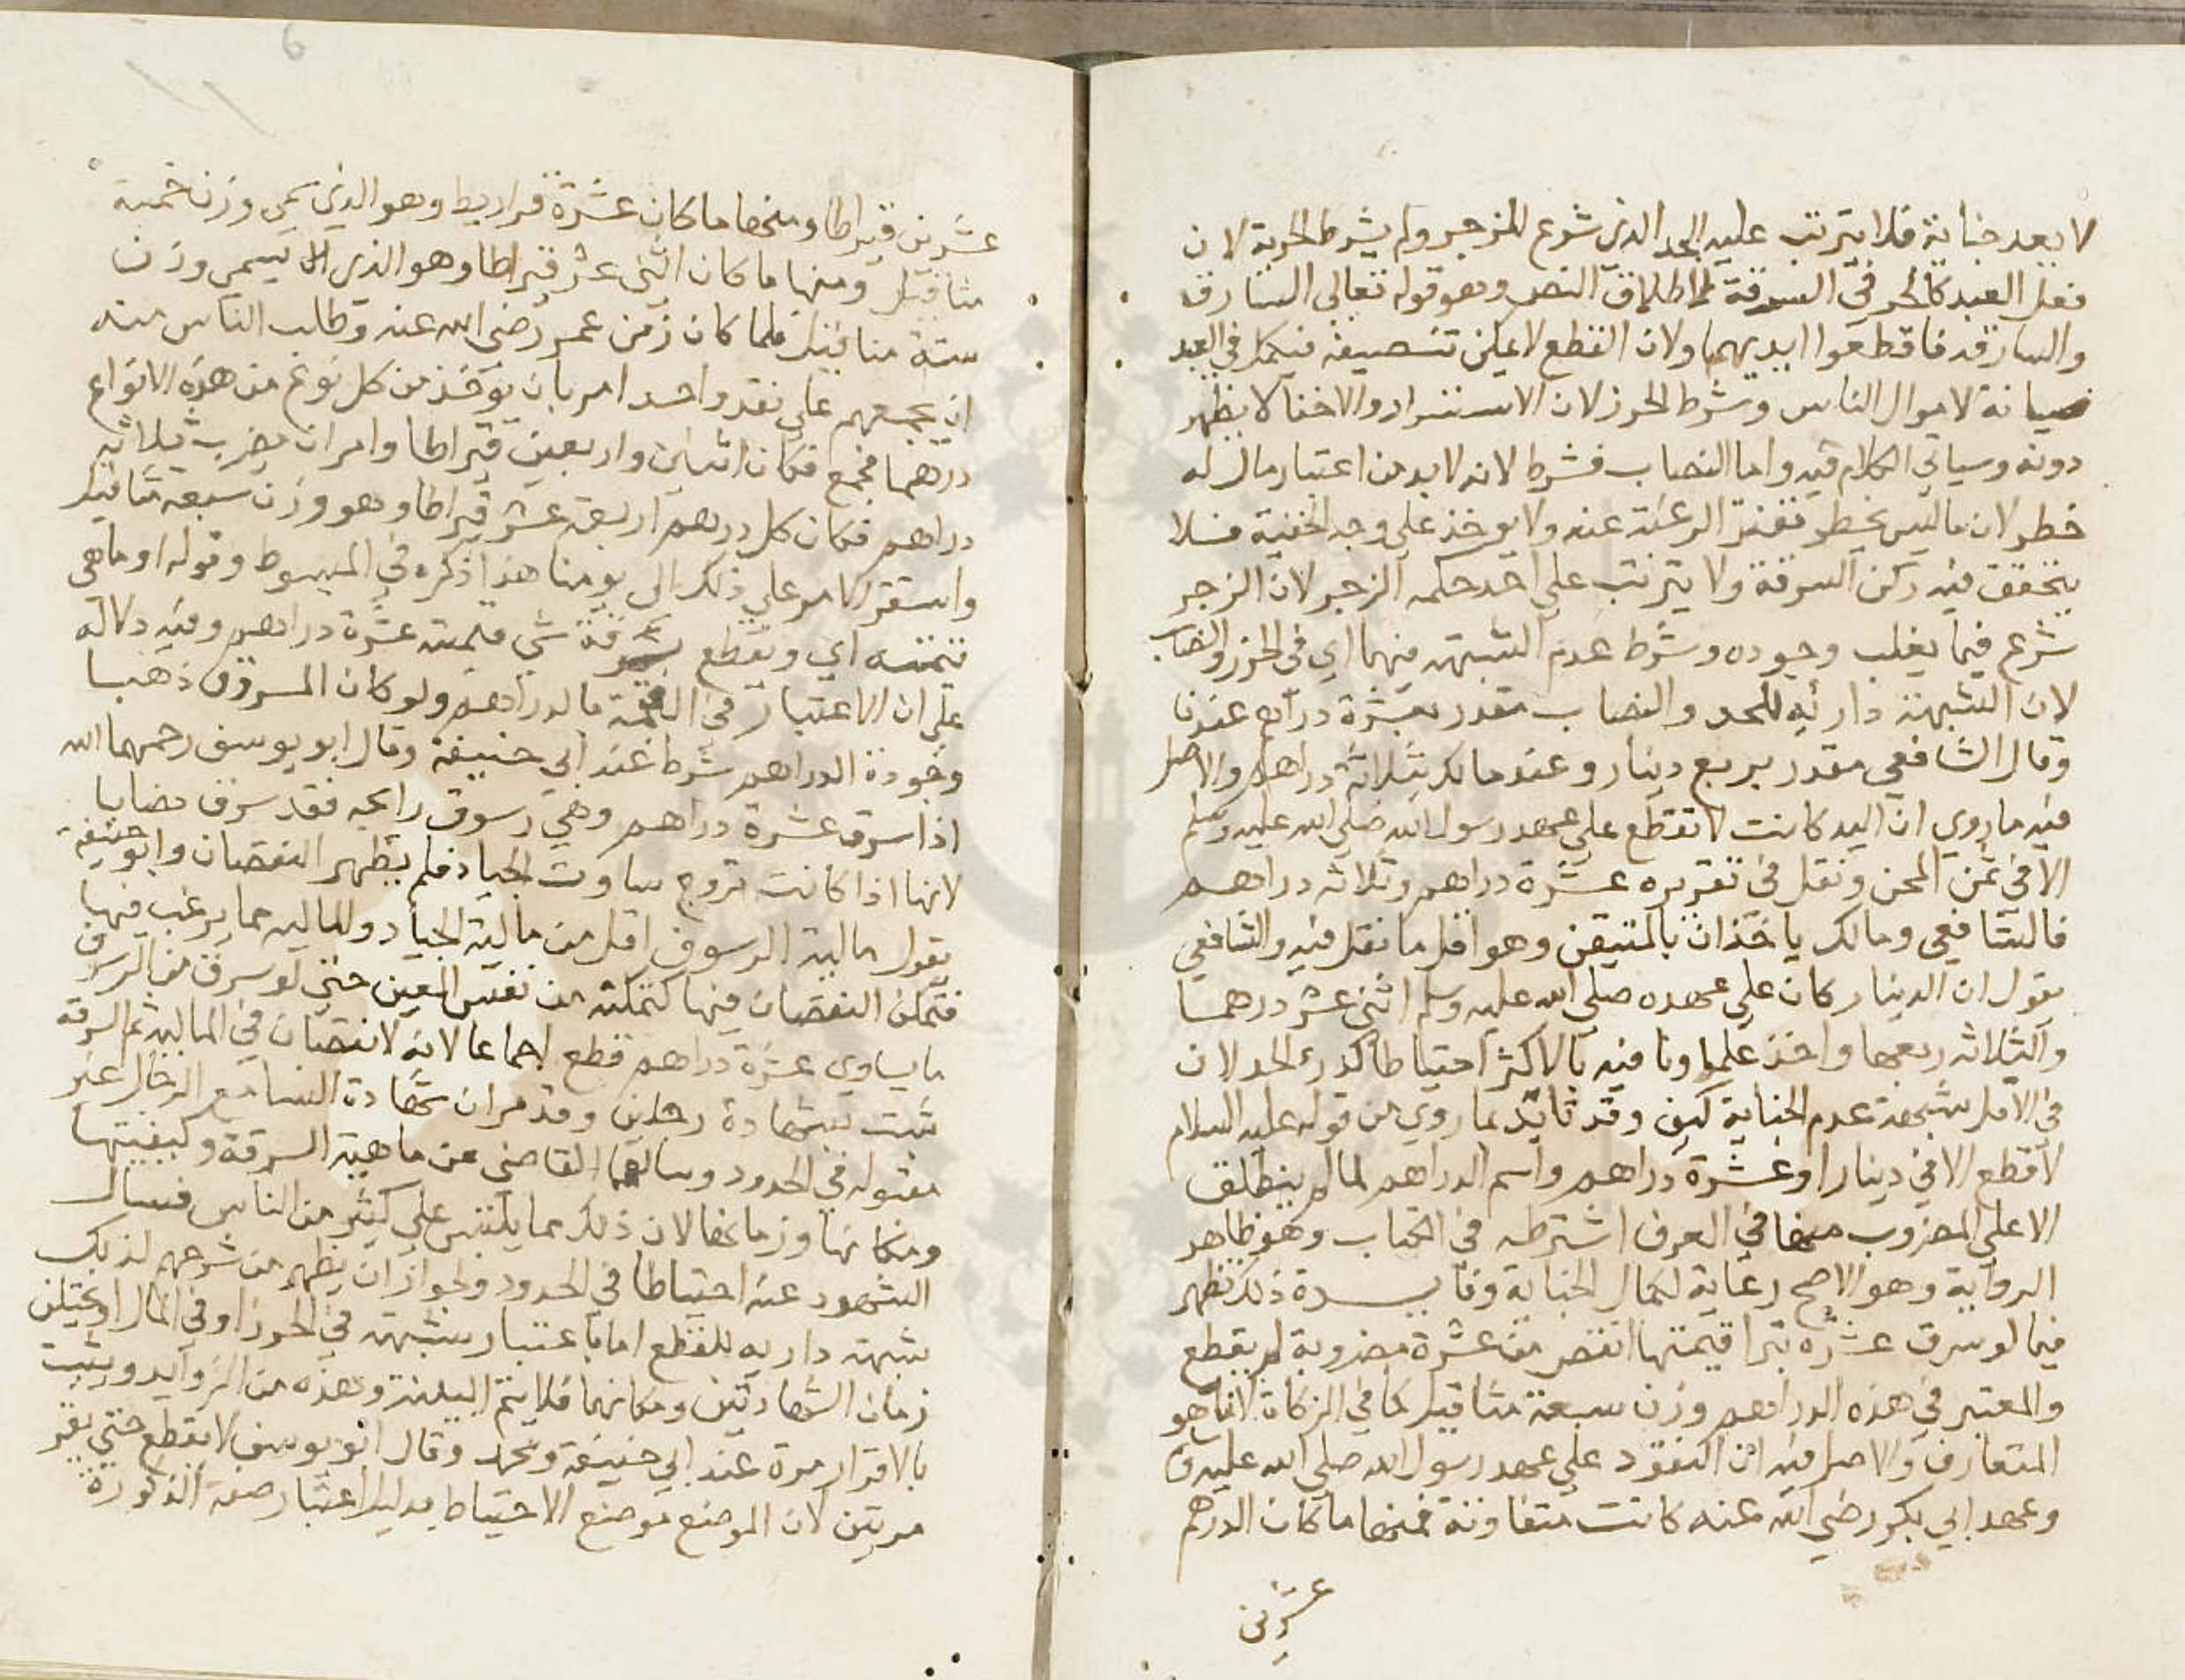 لا يعد جناية فلا يترتب عليه الحد الذي شرع للزجر ولم يشرط الحرية لان
فعل العبد كالحر في السرقة لاطلاق النص وهو قوله تعالى السارق
والسارقة فاقطعوا ايديهما ولان القطع لا يمكن تنصيفه فيكمل في العبد
صيانة لاموال الناس وشرط الحرز لان الاستسرار والاخفا لا يظهر
دونه وسياتي الكلام فيه واما النصاب فشرط لانه لا بد من اعتبار مال له
خطر لان ما ليس بخطر تفتر الرغبة عنه ولا يوخذ على وجه الخفية فلا
يتحقق فيه ركن السرقة ولا يترتب على اخذ حكمه الزجر لان الزجر
شرع فيما يغلب وجوده وشرط عدم الشبهة فيهما اي في الحرز والنصاب
لان الشبهة دارئه للحد والنصاب مقدر بعشرة دراهم عندنا
وقال الشافعي مقدر بربع دينار وعند مالك بثلاثة دراهم والاصل
فيه ما روي ان اليد كانت لا تقطع على عهد رسول الله صلى الله عليه وسلم
الا في ثمن المجن ونقل في تقديره عشرة دراهم وثلاثه دراهم
فالشافعي ومالك ياخذان بالمتيقن وهو اقل ما نقل فيه والشافعي
يقول ان الدينار كان على عهده صلى الله عليه وسلم اثنى عشر درهما
والثلاثه ربعها واخذ علماونا فيه بالاكثر احتياطا لدرء الحد لان
في الاقل شبهة عدم الجناية كيف وقد تايد بما روي من قوله عليه السلام
لا قطع الا في دينار او عشرة دراهم واسم الدراهم لما لم ينطلق
الا على المضروب منها في العرف اشترطه في الكتاب وهو ظاهر
الرواية وهو الاصح رعاية لكمال الجناية وفايدة ذلك تظهر
فيما لو سرق عشره تبرا قيمتها انقص من عشرة مضروبة لم يقطع
والمعتبر في هذه الدراهم وزن سبعة مثاقيل كما في الزكاة لانها هو
المتعارف والاصل فيه ان النقود على عهد رسول الله صلى الله عليه
وعهد ابي بكر رضي الله عنه كانت متفاوتة فمنها ما كان الدرهم
عشرين
عشرين قيراطا ومنها ما كان عشرة قراريط وهو الذي يسمى وزن خمسة
مثاقيل ومنها ما كان اثنى عشر قيراطا وهو الذي يسمى وزن
ستة مثاقيل فلما كان زمن عمر رضي الله عنه وطالب الناس منه
ان يجمعهم على نقد واحد امر بان يوخذ من كل نوع من هذه الانواع
درهما فجمع فكان اثنين واربعين قيراطا وامر ان يضرب ثلاثه
دراهم فكان كل درهم اربعة عشر قيراطا وهو وزن سبعة مثاقيل
واستقر الامر على ذلك الى يومنا هذا ذكره في المبسوط وقوله او ما هي
قيمته اي ويقطع بسرقة شي قيمته عشرة دراهم وفيه دلاله
على ان الاعتبار في القيمة بالدراهم ولو كان المسروق ذهبا
وجودة الدراهم شرط عند ابي حنيفة وقال ابو يوسف رحمهما الله
اذا سرق عشرة دراهم وهي زيوف رايجه فقد سرق نصابا
لانها اذا كانت تروج ساوت الجياد فلم يظهر النقصان وابو حنيفة
يقول مالية الزيوف اقل من مالية الجياد والماليه مما يرغب فيها
فتمكن النقصان فيها كتمكنه من نفس العين حتى لو سرق من الزيوف
ما يساوي عشرة دراهم قطع اجماعا لانه لا نقصان في المالية ثم السرقة
تثبت بشهادة رجلين وقد مر ان شهادة النسا مع الرجال غير
مقبوله في الحدود وسالهما القاضي عن ماهية السرقة وكيفيتها
ومكانها وزمانها لان ذلك مما يلتبس على كثير من الناس فيسال
الشهود عنه احتياطا في الحدود ولجواز ان يظهر من شرحهم لذلك
شبهة داريه للقطع اما باعتبار شبهة في الحرز او في المال او يختلف
زمان الشهادتين ومكانهما فلا يتم البينة وهذه من الزوايد ويثبت
بالاقرار مرة عند ابي حنيفة ومحمد وقال ابو يوسف لا يقطع حتى يقر
مرتين لان الموضع موضع الاحتياط بدليل اعتبار صفة الذكورة